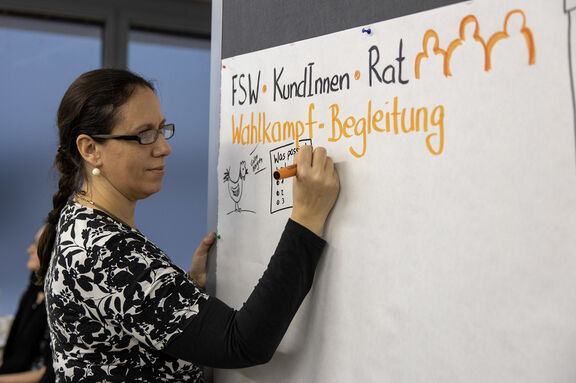 FSW • KundInnen • Rat
Wahlkampf-Begleitung
Was pas
2
3